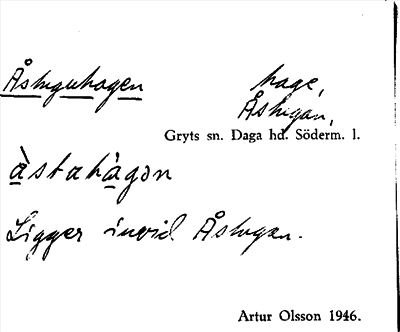 Åstuguhagen hage,
Åstugan,
Gryts sn. Daga hd. Söderm. l.
àstahàgən
Ligger invid Åstugan.
Artur Olsson 1946.